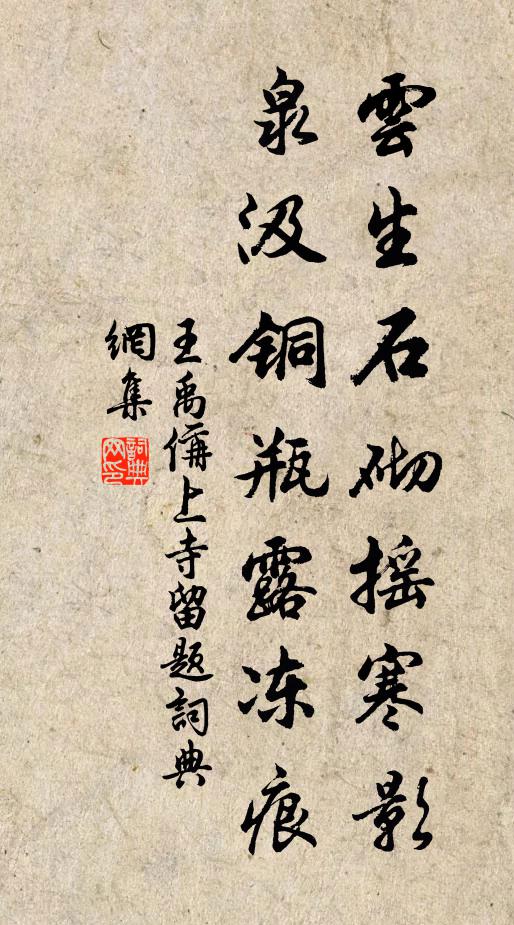 雲生石砌摇寒影
泉汲铜瓶露冻痕
王禹偁上寺留题詞典
網集
詞典
网印